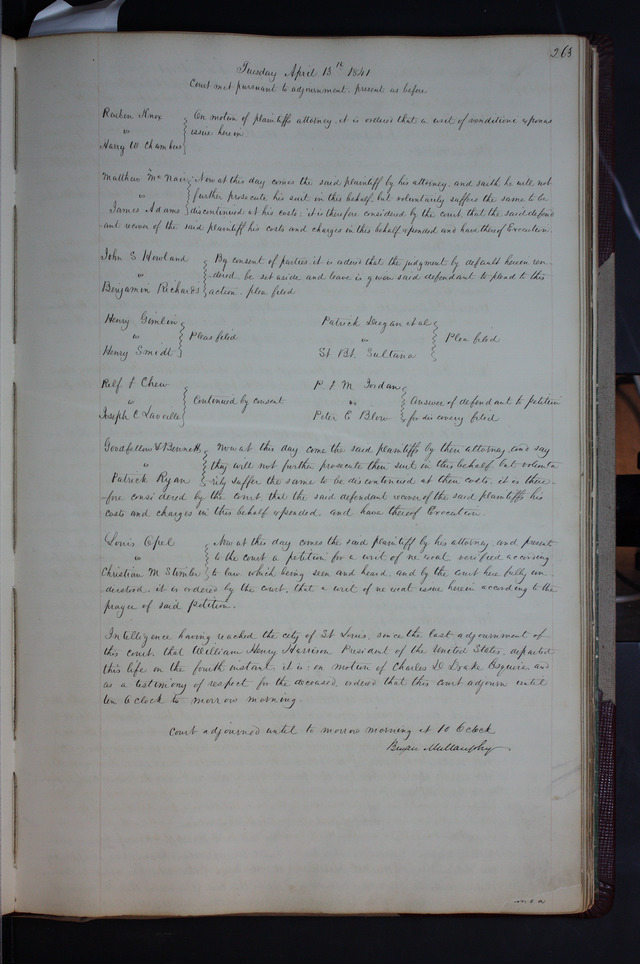 263
Tuesday April 13th 1841
Court met pursuant to adjournment. present as before
Reuben Knox
vs
Harry W Chambers
On motion of plaintiffs attorney, it is ordered that a writ of venditione exponas
issue herein
Matthew McNair
vs
James Adams
Now at this day comes the said plaintiff by his attorney, and saith he will not
further prosecute his suit in this behalf but voluntarily suffers the same to be
discontinued at his costs: it is therefore considered by the court, that the said defend
ant recover of the said plaintiff his costs and charges in this behalf expended and have thereof Execution
John S Howland
vs
Benjamin Richards
By consent of parties it is ordered that the judgment by default herein ren-
dered, be set aside and leave is given said defendant to plead to this
action. plea filed
Henry Gimlin
vs
Henry Smidt
Pleas filed
Patrick Deegan et al
vs
St Bt. Sultana
Plea filed
Relf & Chew
vs
Joseph C Laveille
Continued by consent
P. & M Jordan
vs
Peter E Blow
Answer of defendant to petition
for discovery filed
Goodfellow & Bennett
vs
Patrick Ryan
Now at this day come the said plaintiffs by their attorney, and say
they will not further prosecute their suit in this behalf but volunta
rily suffer the same to be discontinued at their costs, it is there-
fore considered by the court, that the said defendant recover of the said plaintiffs his
costs and charges in this behalf expended. and have thereof Execution
Louis Opel
vs
Christian M
Now at this day comes the said plaintiff by his attorney, and present
to the court a petition for a writ of ne exeat verified according
to law which being seen and heard, and by the court here fully un-
derstood, it is ordered by the court, that a writ of ne exeat issue herein according to the
prayer of said Petition.
Intelligence having reached the city of St Louis, since the last adjournment of
this court, that William Henry Harrison President of the United States, departed
this life on the fourth instant, it is: on motion of Charles D Drake Esquire and
as a testimony of respect for the deceased, ordered that this court adjourn until
ten O clock to morrow morning.
Court adjourned until to morrow morning at 10 O clock
Bryan Mullanphy